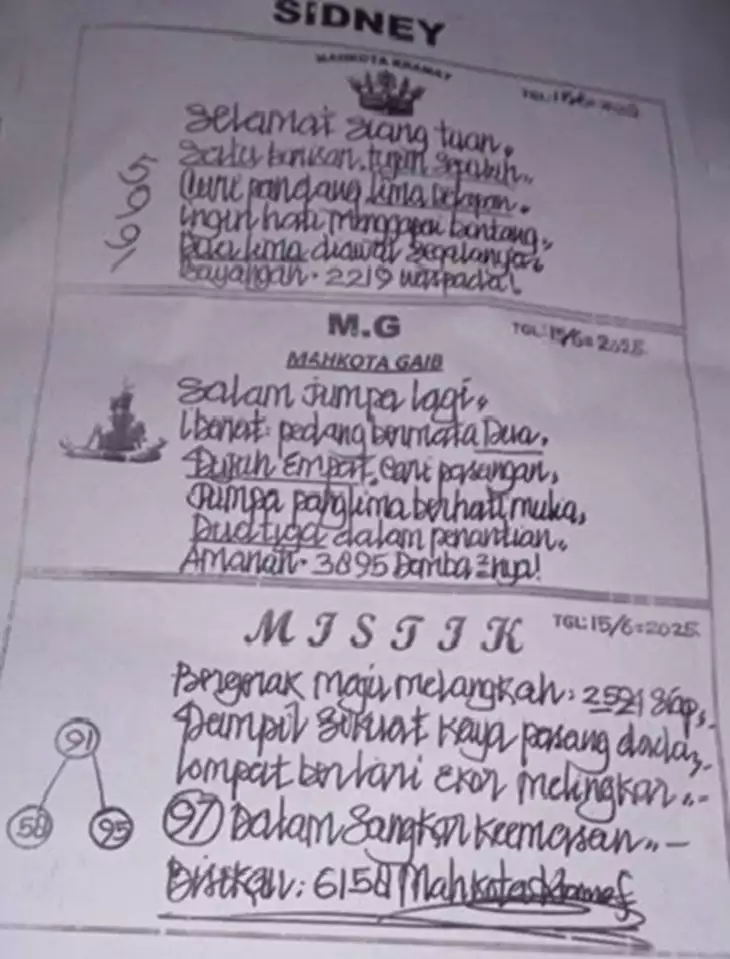 SIDNEY
MAHKOTA KRAMAT
TGL: 15/6=2025
Selamat siang tuan,
Satu barisan, tujuh sepuluh,,
Curi pandang lima delapan,
Ingin hati menggapai bintang,,
Dua lima diawal segalanya,
Bayangan. 2219 waspada!
5991
M.G
TGL: 15/6=2025
MAHKOTA GAIB
Salam Jumpa lagi,
Ibarat: pedang bermata Dua,
Tujuh Empat, cari pasangan,
Jumpa panglima berhati muka,
Dua tiga dalam penantian.
Amanah. 3895 Damba²nya!
MISTIK
TGL: 15/6=2025
Bergerak maju melangkah: 2521 Siap,
Tampil Sekuat Kaya pasang dada,
Lompat berlari Ekor melingkar,,-
97 Dalam Sangkar Keemasan,,-
Bisikan: 6158
91
58 95